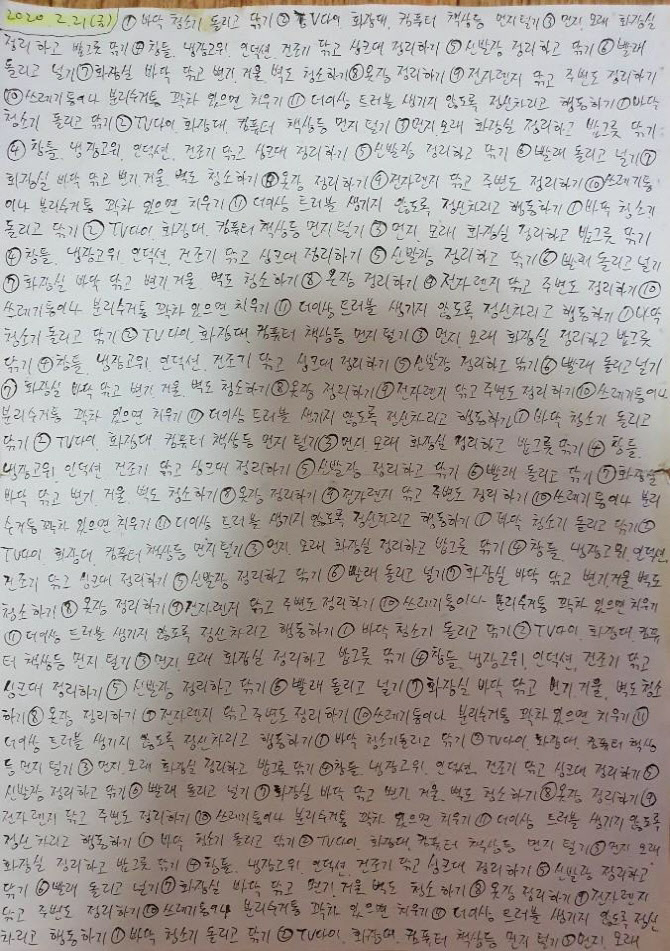 2020 2.21(금) ① 바닥 청소기 돌리고 닦기 ② TV다이 화장대, 컴퓨터 책상등 먼지털기 ③ 먼지.모래 화장실
정리하고 밥그릇 닦기 ④ 창틀, 냉장고위, 인덕션, 건조기 닦고 싱크대 정리하기 ⑤ 신발장 정리하고 닦기 ⑥ 빨래
돌리고 널기 ⑦ 화장실 바닥 닦고 변기.거울 벽도 청소하기 ⑧ 옷장 정리하기 ⑨ 전자렌지 닦고 주변도 정리하기
⑩ 쓰레기통이나 분리수거통 꽉차 있으면 치우기 ⑪ 더이상 트러블 생기지 않도록 정신차리고 행동하기 ① 바닥
청소기 돌리고 닦기 ② TV다이, 화장대, 컴퓨터 책상등 먼지 털기 ③ 먼지모래 화장실 정리하고 밥그릇 닦기
④ 창틀, 냉장고위, 인덕션, 건조기 닦고 싱크대 정리하기 ⑤ 신발장 정리하고 닦기 ⑥ 빨래 돌리고 널기 ⑦
화장실 바닥 닦고 변기.거울 벽도 청소하기 ⑧ 옷장 정리하기 ⑨ 전자렌지 닦고 주변도 정리하기 ⑩ 쓰레기통
이나 분리수거통 꽉차 있으면 치우기 ⑪ 더이상 트러블 생기지 않도록 정신차리고 행동하기 ① 바닥 청소기
돌리고 닦기 ② TV다이, 화장대, 컴퓨터 책상등 먼지털기 ③ 먼지 모래 화장실 정리하고 밥그릇 닦기
④ 창틀, 냉장고위, 인덕션, 건조기 닦고 싱크대 정리하기 ⑤ 신발장 정리하고 닦기 ⑥ 빨래 돌리고 널기
⑦ 화장실 바닥 닦고 변기.거울. 벽도 청소하기 ⑧ 옷장 정리하기 ⑨ 전자렌지 닦고 주변도 정리하기 ⑩
쓰레기통이나 분리수거통 꽉차 있으면 치우기 ⑪ 더이상 트러블 생기지 않도록 정신차리고 행동하기 ① 바닥
청소기 돌리고 닦기 ② TV다이, 화장대, 컴퓨터 책상등 먼지털기 ③ 먼지 모래 화장실 정리하고 밥그릇
닦기 ④ 창틀, 냉장고위, 인덕션, 건조기 닦고 싱크대 정리하기 ⑤ 신발장 정리하고 닦기 ⑥ 빨래 돌리고 널기
⑦ 화장실 바닥 닦고 변기.거울. 벽도 청소하기 ⑧ 옷장 정리하기 ⑨ 전자렌지 닦고 주변도 정리하기 ⑩ 쓰레기통이나
분리수거통 꽉차 있으면 치우기 ⑪ 더이상 트러블 생기지 않도록 정신차리고 행동하기 ① 바닥 청소기 돌리고
닦기 ② TV다이 화장대 컴퓨터 책상등 먼지 털기 ③ 먼지 모래 화장실 정리하고 밥그릇 닦기 ④ 창틀,
냉장고위 인덕션 건조기 닦고 싱크대 정리하기 ⑤ 신발장 정리하고 닦기 ⑥ 빨래 돌리고 닦기 ⑦ 화장실
바닥 닦고 변기. 거울, 벽도 청소하기 ⑧ 옷장 정리하기 ⑨ 전자렌지 닦고 주변도 정리하기 ⑩ 쓰레기통이나 분리
수거통 꽉차 있으면 치우기 ⑪ 더이상 트러블 생기지 않도록 정신차리고 행동하기 ① 바닥 청소기 돌리고 닦기 ②
TV다이, 화장대, 컴퓨터 책상등 먼지털기 ③ 먼지. 모래 화장실 정리하고 밥그릇 닦기 ④ 창틀, 냉장고위, 인덕션,
건조기 닦고 싱크대 정리하기 ⑤ 신발장 정리하고 닦기 ⑥ 빨래 돌리고 널기 ⑦ 화장실 바닥 닦고 변기.거울.벽도
청소하기 ⑧ 옷장 정리하기 ⑨ 전자렌지 닦고 주변도 정리하기 ⑩ 쓰레기통이나 분리수거통 꽉차 있으면 치우기
⑪ 더이상 트러블 생기지 않도록 정신차리고 행동하기 ① 바닥 청소기 돌리고 닦기 ② TV다이, 화장대, 컴퓨
터 책상등 먼지 털기 ③ 먼지. 모래 화장실 정리하고 밥그릇 닦기 ④ 창틀, 냉장고위, 인덕션, 건조기 닦고
싱크대 정리하기 ⑤ 신발장 정리하고 닦기 ⑥ 빨래 돌리고 널기 ⑦ 화장실 바닥 닦고 변기.거울, 벽도 청소
하기 ⑧ 옷장 정리하기 ⑨ 전자렌지 닦고 주변도 정리하기 ⑩ 쓰레기통이나 분리수거통 꽉차 있으면 치우기 ⑪
더이상 트러블 생기지 않도록 정신차리고 행동하기 ① 바닥 청소기돌리고 닦기 ② TV다이, 화장대, 컴퓨터 책상
등 먼지 털기 ③ 먼지.모래 화장실 정리하고 밥그릇 닦기 ④ 창틀, 냉장고위, 인덕션, 건조기 닦고 싱크대 정리하기 ⑤
신발장 정리하고 닦기 ⑥ 빨래 돌리고 널기 ⑦ 화장실 바닥 닦고 변기, 거울 벽도 청소하기 ⑧ 옷장 정리하기 ⑨
전자렌지 닦고 주변도 정리하기 ⑩ 쓰레기통이나 분리수거통 꽉차 있으면 치우기 ⑪ 더이상 트러블 생기지 않도록
정신 차리고 행동하기 ① 바닥 청소기 돌리고 닦기 ② TV다이, 화장대, 컴퓨터 책상등 먼지 털기 ③ 먼지 모래
화장실 정리하고 밥그릇 닦기 ④ 창틀, 냉장고위, 인덕션, 건조기 닦고 싱크대 정리하기 ⑤ 신발장 정리하고
닦기 ⑥ 빨래 돌리고 널기 ⑦ 화장실 바닥 닦고 변기.거울 벽도 청소하기 ⑧ 옷장 정리하기 ⑨ 전자렌지
닦고 주변도 정리하기 ⑩ 쓰레기통이나 분리수거통 꽉차 있으면 치우기 ⑪ 더이상 트러블 생기지 않도록 정신
차리고 행동하기 ① 바닥 청소기 돌리고 닦기 ② TV다이, 화장대, 컴퓨터 책상등 먼지 털기 ③ 먼지. 모래